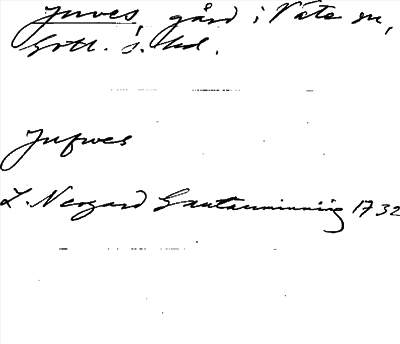 Juves, gård i Väte sn,
Gotl. s. hd.
Jufwes
L. Neogard Gautauminning 1732